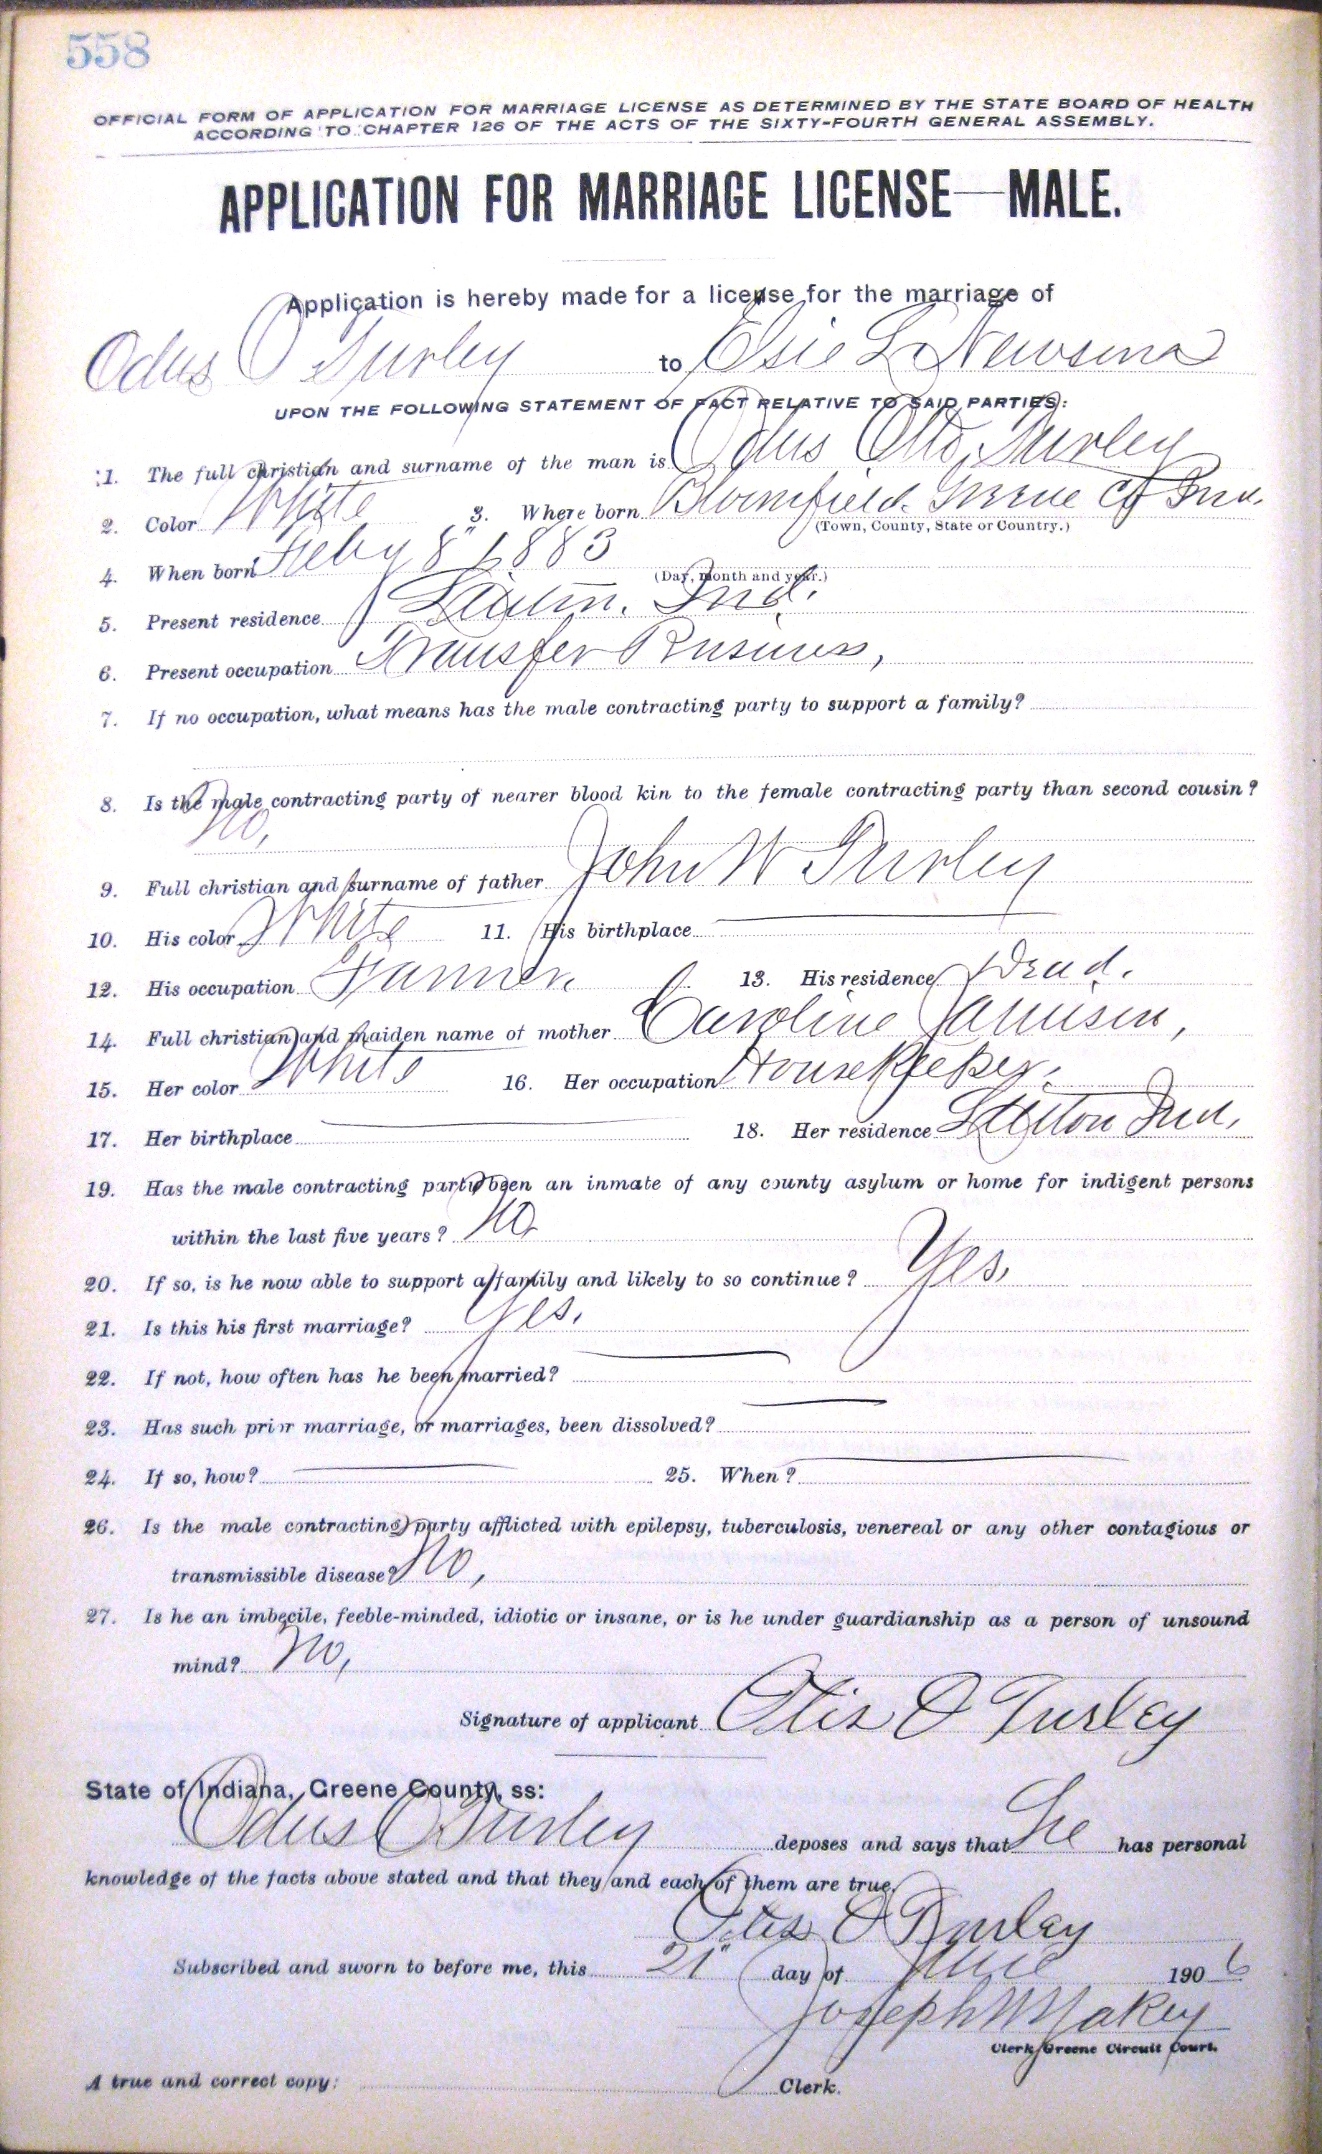 558
OFFICIAL FORM OF APPLICATION FOR MARRIAGE LICENSE AS DETERMINED BY THE STATE BOARD OF HEALTH
ACCORDING TO CHAPTER 126 OF THE ACTS OF THE SIXTY-FOURTH GENERAL ASSEMBLY.
APPLICATION FOR MARRIAGE LICENSE—MALE.
Application is hereby made for a license for the marriage of
Odus O Turley to Elsie L Newsom
UPON THE FOLLOWING STATEMENT OF FACT RELATIVE TO SAID PARTIES:
1. The full christian and surname of the man is Odus Otto Turley
2. Color White 3. Where born Bloomfield Greene Co Ind.
(Town, County, State or Country.)
4. When born Feby 8" 1883
(Day, month and year.)
5. Present residence Linton. Ind.
6. Present occupation Transfer Business,
7. If no occupation, what means has the male contracting party to support a family?
8. Is the male contracting party of nearer blood kin to the female contracting party than second cousin?
No,
9. Full christian and surname of father John W Turley
10. His color White 11. His birthplace
12. His occupation Farmer. 13. His residence Dead.
14. Full christian and maiden name of mother Caroline Jamison,
15. Her color White 16. Her occupation Housekeeper.
17. Her birthplace 18. Her residence Linton Ind.
19. Has the male contracting party been an inmate of any county asylum or home for indigent persons
within the last five years? No
20. If so, is he now able to support a family and likely to so continue? Yes,
21. Is this his first marriage? Yes,
22. If not, how often has he been married?
23. Has such prior marriage, or marriages, been dissolved?
24. If so, how? 25. When?
26. Is the male contracting party afflicted with epilepsy, tuberculosis, venereal or any other contagious or
transmissible disease? No,
27. Is he an imbecile, feeble-minded, idiotic or insane, or is he under guardianship as a person of unsound
mind? No,
Signature of applicant Otis O Turley
State of Indiana, Greene County, ss:
Odus O Turley deposes and says that he has personal
knowledge of the facts above stated and that they and each of them are true.
Otis O Turley
Subscribed and sworn to before me, this 21" day of June 1906
Joseph W Yakey
Clerk Greene Circuit Court.
A true and correct copy: Clerk.